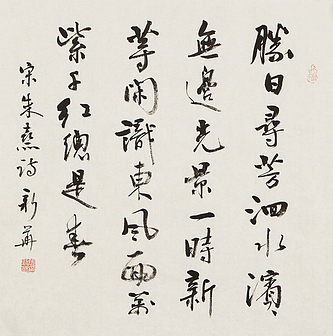 勝日尋芳泗水濱
無邊光景一時新
等閑識東風面萬
紫千紅總是春
宋朱熹詩 新華